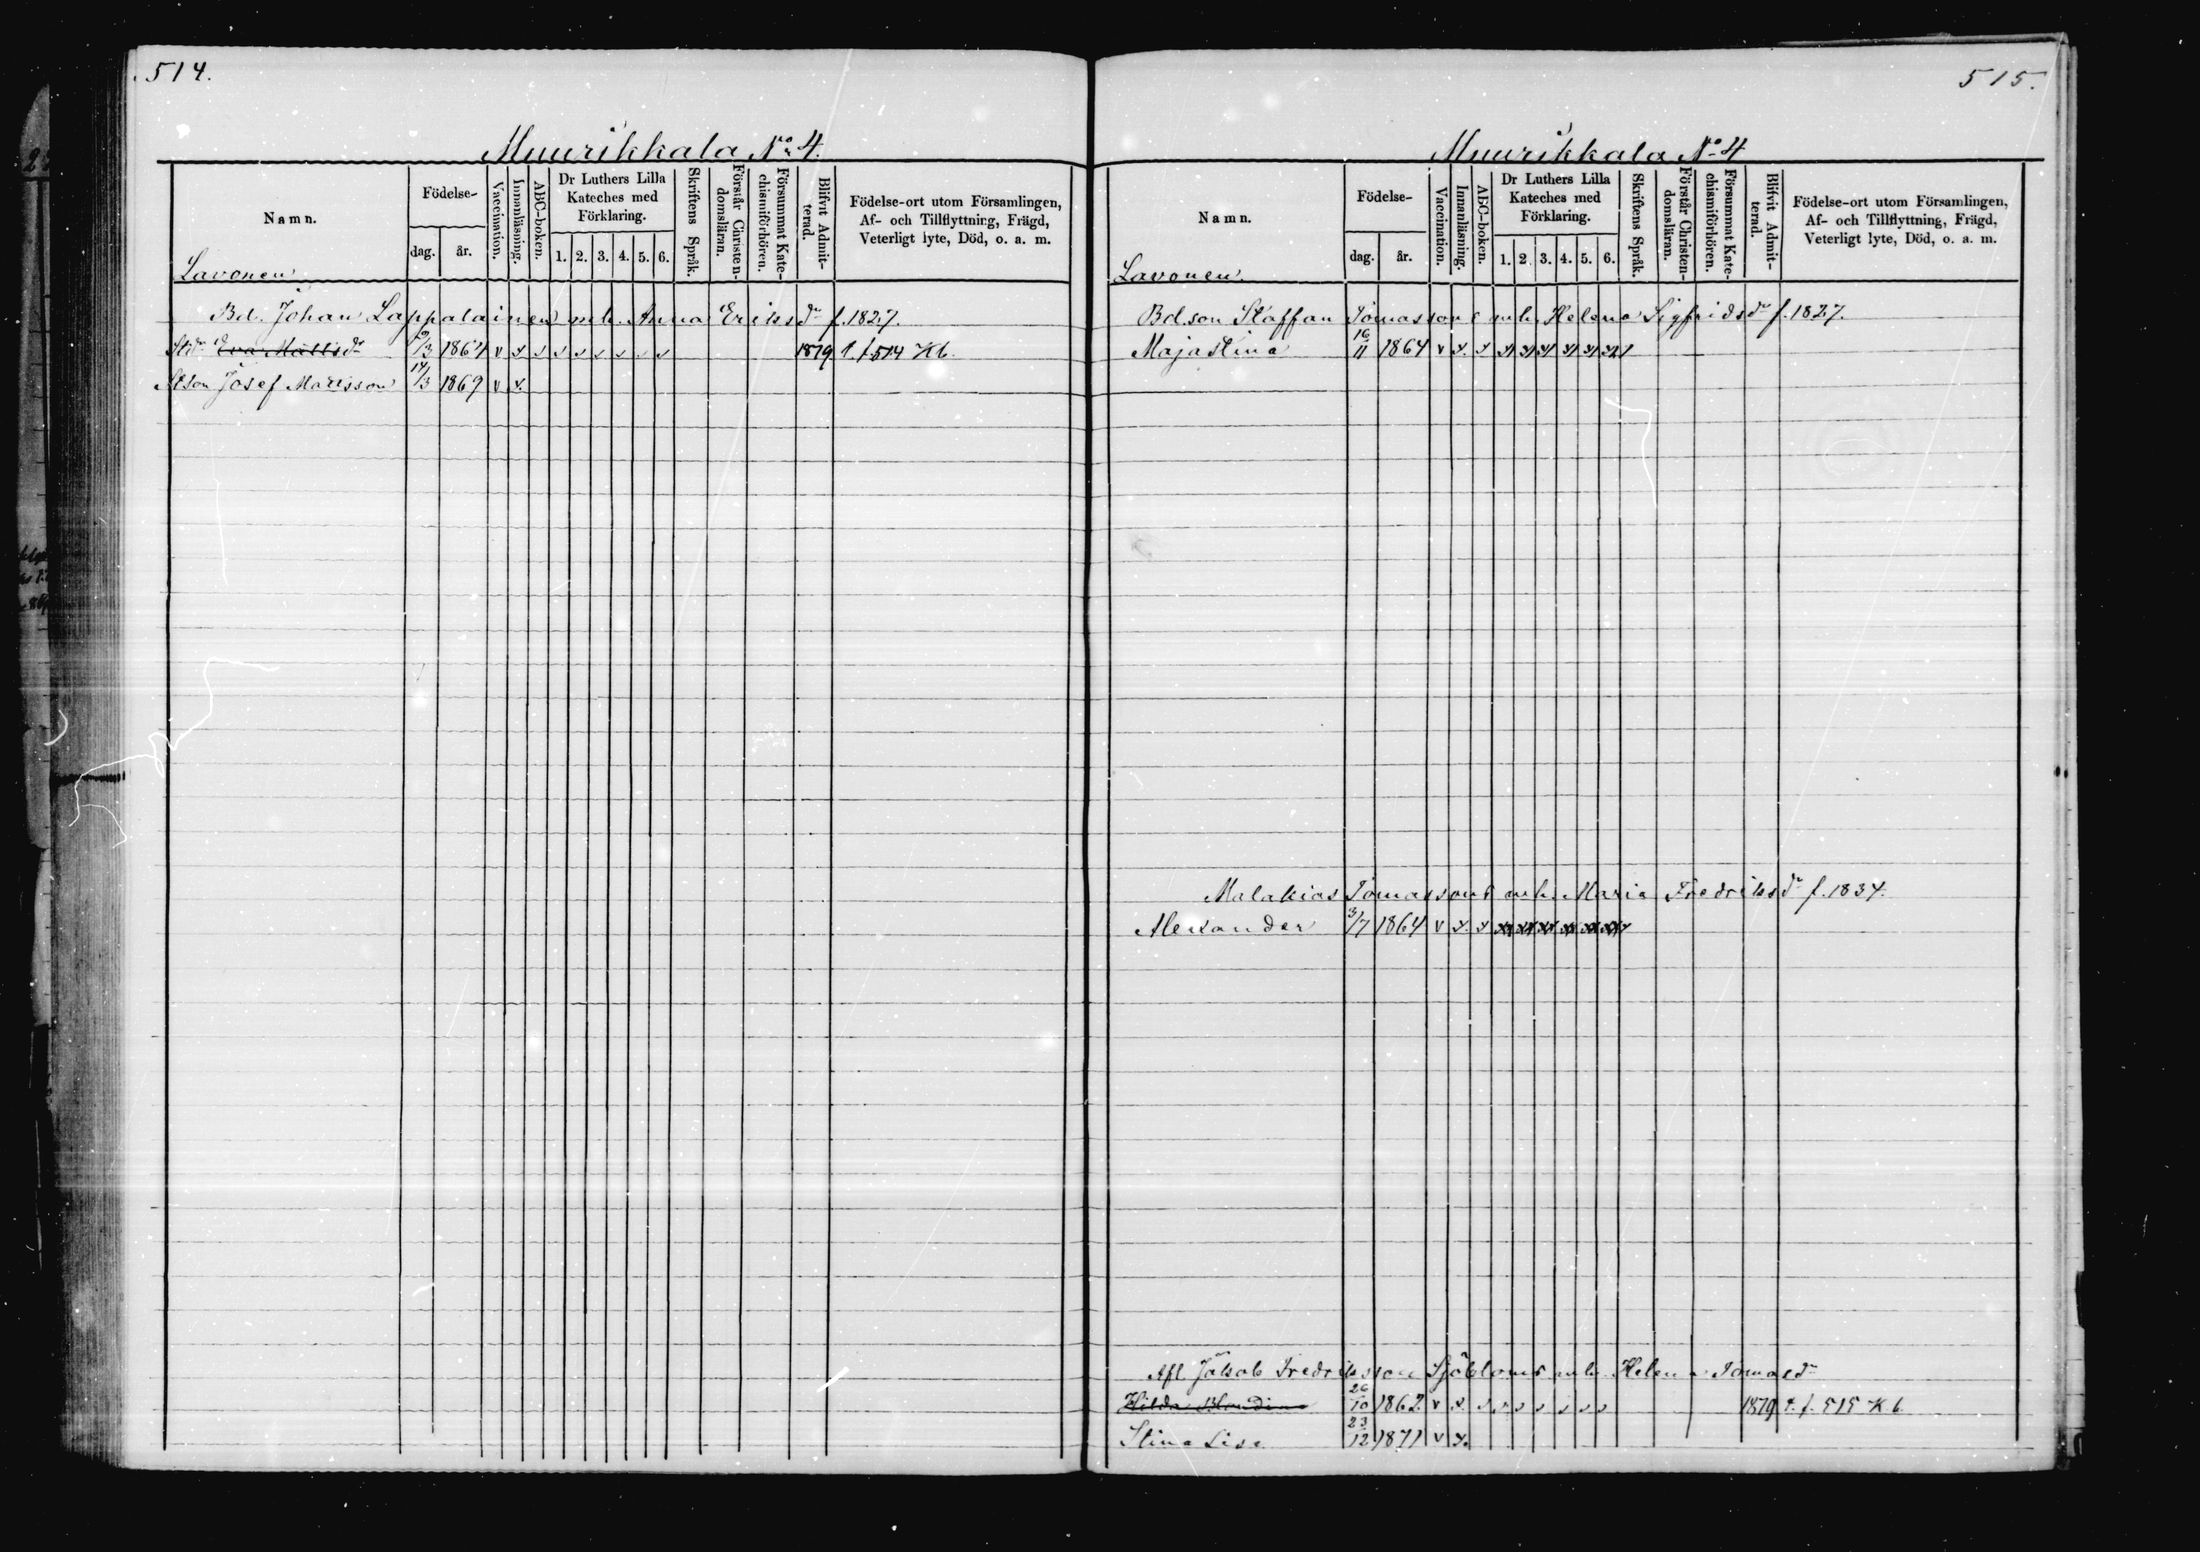 514.
Muurikkala No 4.
Namn. Födelse- dag. år. Vaccination. Innanläsning. ABC-boken. Dr Luthers Lilla Kateches med Förklaring. 1. 2. 3. 4. 5. 6. Skriftens Språk. Förstår Christendomsläran. Försummat Katechismiförhören. Blifvit Admitterad. Födelse-ort utom Församlingen, Af- och Tillflyttning, Frägd, Veterligt lyte, Död, o. a. m.
Lavonen
Bd. Johan Lappalainen m.h. Anna Eriksdr f. 1827.
Stdr Eva Mattsdr /3 1864 v x v v v v v v v 1879 t. f 514 Kb.
Stson Josef Marisson 14/3 1869 v x.
515.
Muurikkala No 4
Namn. Födelse- dag. år. Vaccination. Innanläsning. ABC-boken. Dr Luthers Lilla Kateches med Förklaring. 1. 2. 3. 4. 5. 6. Skriftens Språk. Förstår Christendomsläran. Försummat Katechismiförhören. Blifvit Admitterad. Födelse-ort utom Församlingen, Af- och Tillflyttning, Frägd, Veterligt lyte, Död, o. a. m.
Lavonen.
Bd.son Staffan Tomassons m.h. Helena Sigfridsdr f. 1827.
Majastina 16/11 1864 v x. x
Malakias Tomassons m.h. Maria Fredriksdr f. 1834.
Alexander 3/7 1864 v x. x
Afl. Jakob Fredriksson Sjöbloms m.h. Helena Tomasdr
Hilda Blondina 26/10 1862 v x. v v v v v v v 1879 t. f. 515 Kb
Stina Lisa 23/12 1871 v x.